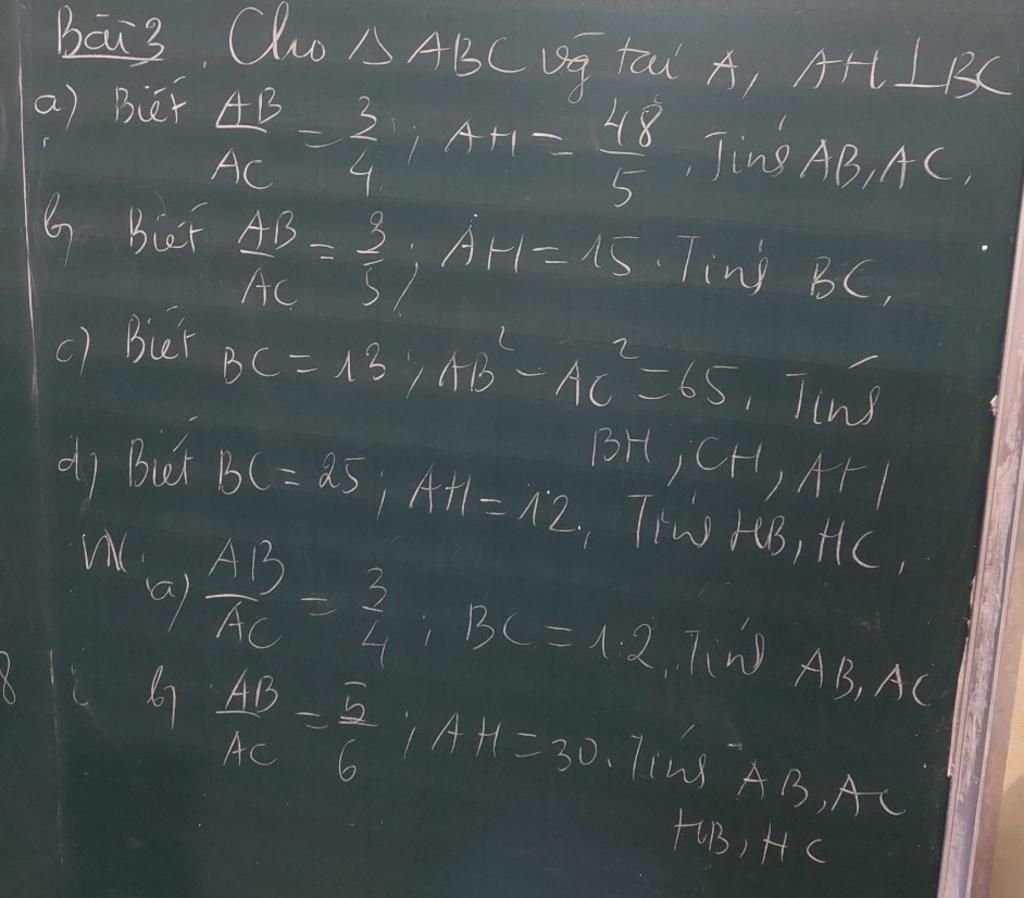 Bài 3. Cho △ ABC vg tại A, AH ⊥ BC
a) Biết AB/AC = 3/4 ; AH = 48/5. Tính AB, AC.
b) Biết AB/AC = 3/5 ; AH = 15. Tính BC.
c) Biết BC = 13 ; AB² - AC² = 65. Tính
BH, CH, AH
d) Biết BC = 25 ; AH = 12. Tính HB, HC.
VN.
a) AB/AC = 3/4 ; BC = 12. Tính AB, AC
8
b) AB/AC = 5/6 ; AH = 30. Tính AB, AC
HB, HC